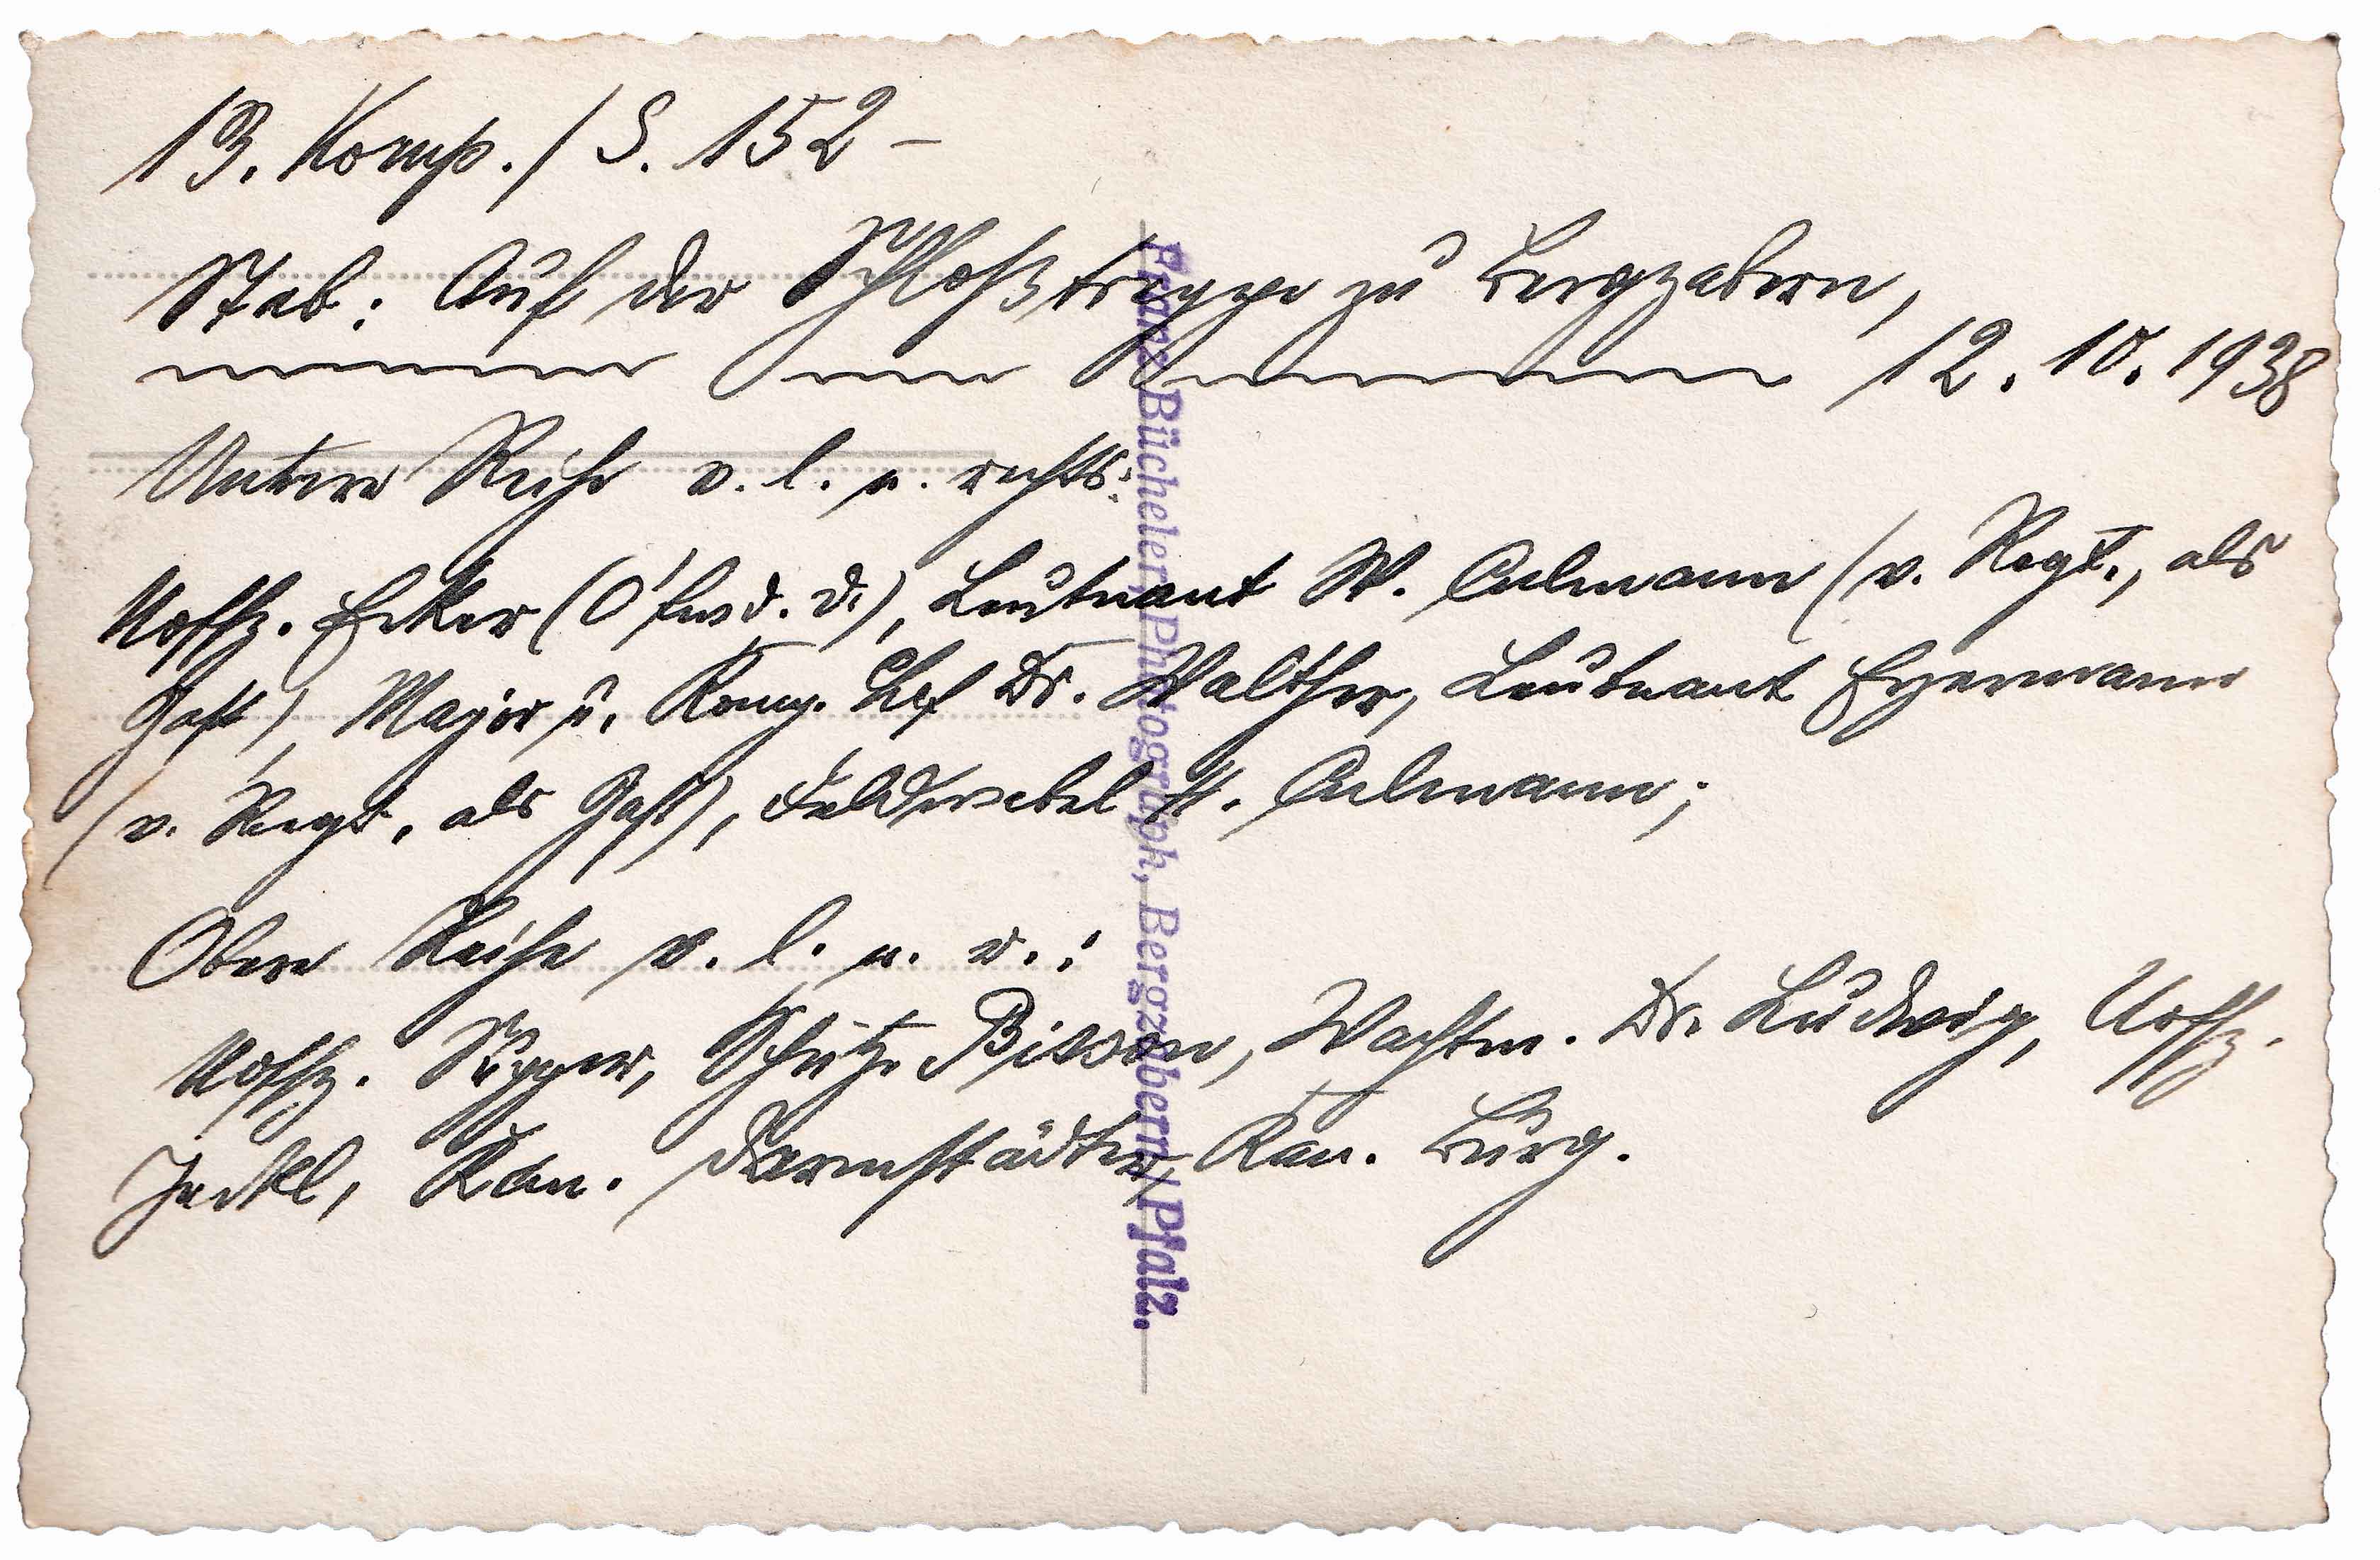 13. Komp. / S. 152 –
Stab: Auf der Schloßtreppe zu Bergzabern,
12. 10. 1938
Untere Reihe v. l. n. rechts:
Uoffz. Ecker (O'fw. d. D.), Leutnant W. Culmann (v. Regt., als
Gast), Major u. Komp. Chef Dr. Walther, Leutnant Eyermann
(v. Regt. als Gast), Feldwebel H. Culmann;
Obere Reihe v. l. n. r.:
Uoffz. Supper, Schütze Bisson, Wachtm. Dr. Ludwig, Uoffz.
Jeckl, Kan. Darmstädter, Kan. Burg.
Franz Bücheler, Photograph, Bergzabern/Pfalz.